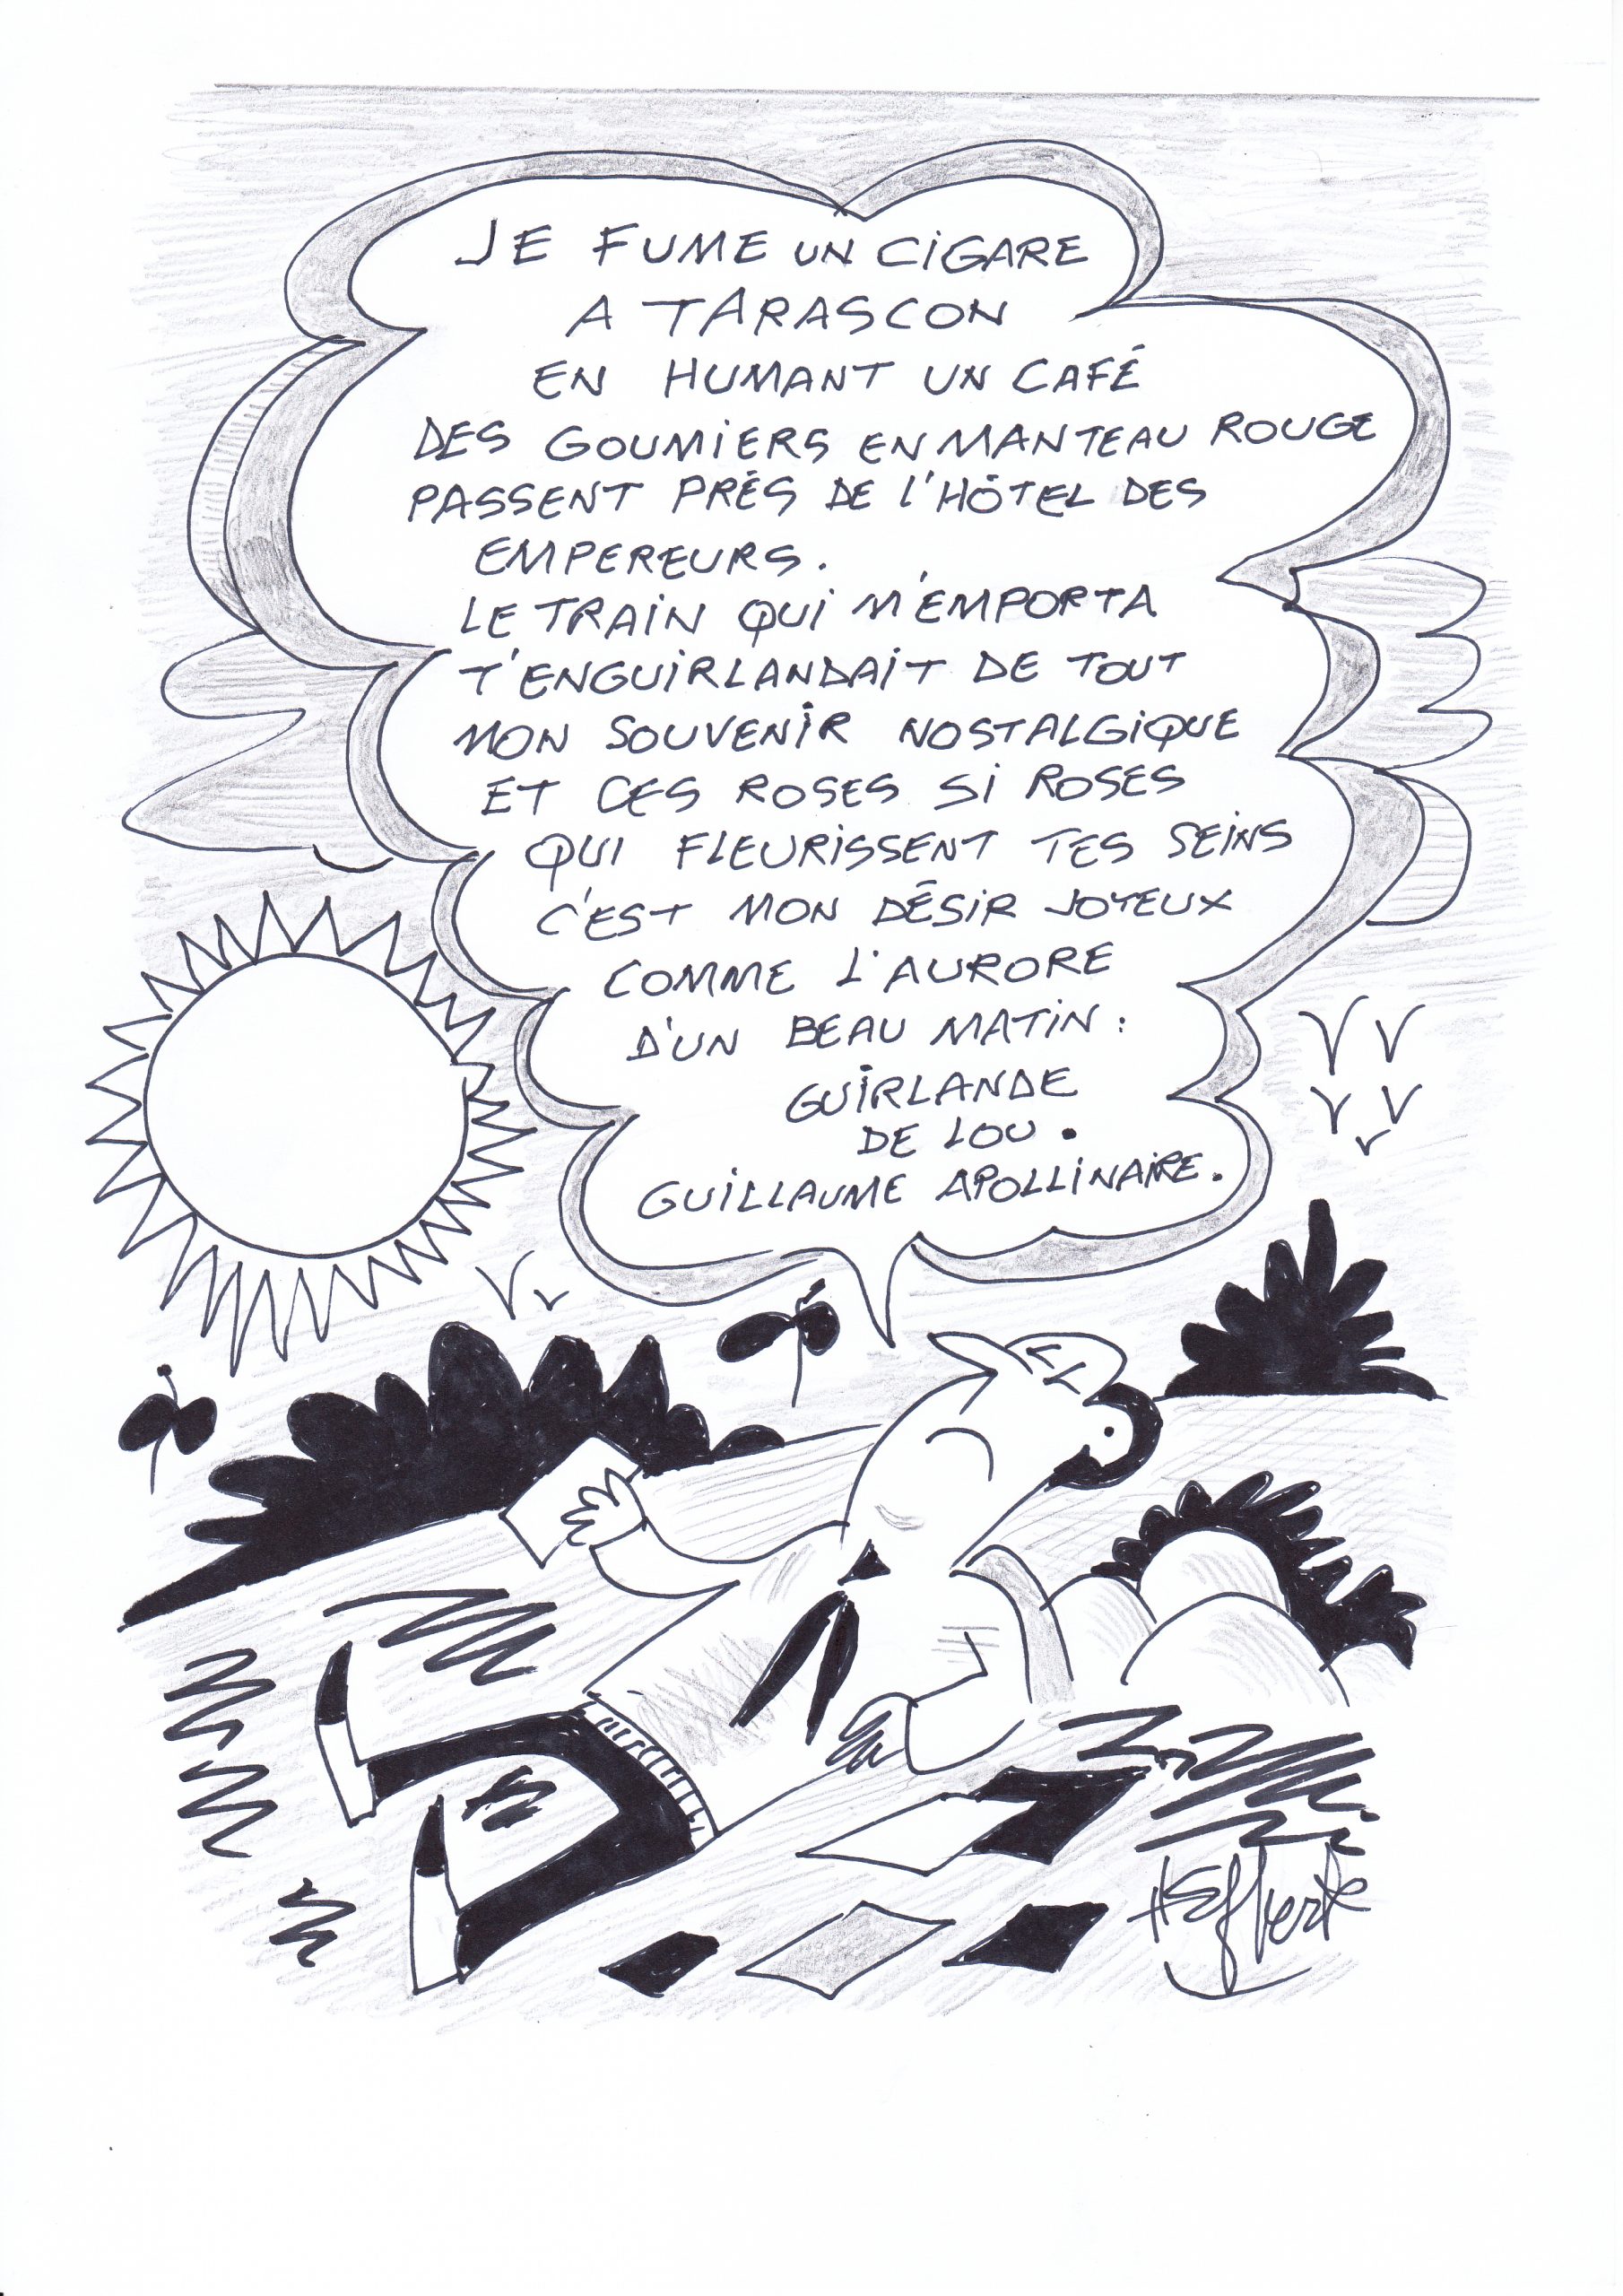 JE FUME UN CIGARE
A TARASCON
EN HUMANT UN CAFÉ
DES GOUMIERS EN MANTEAU ROUGE
PASSENT PRÉS DE L'HÔTEL DES
EMPEREURS.
LE TRAIN QUI M'EMPORTA
T'ENGUIRLANDAIT DE TOUT
MON SOUVENIR NOSTALGIQUE
ET CES ROSES SI ROSES
QUI FLEURISSENT TES SEINS
C'EST MON DÉSIR JOYEUX
COMME L'AURORE
D'UN BEAU MATIN :
GUIRLANDE
DE LOU.
GUILLAUME APOLLINAIRE.